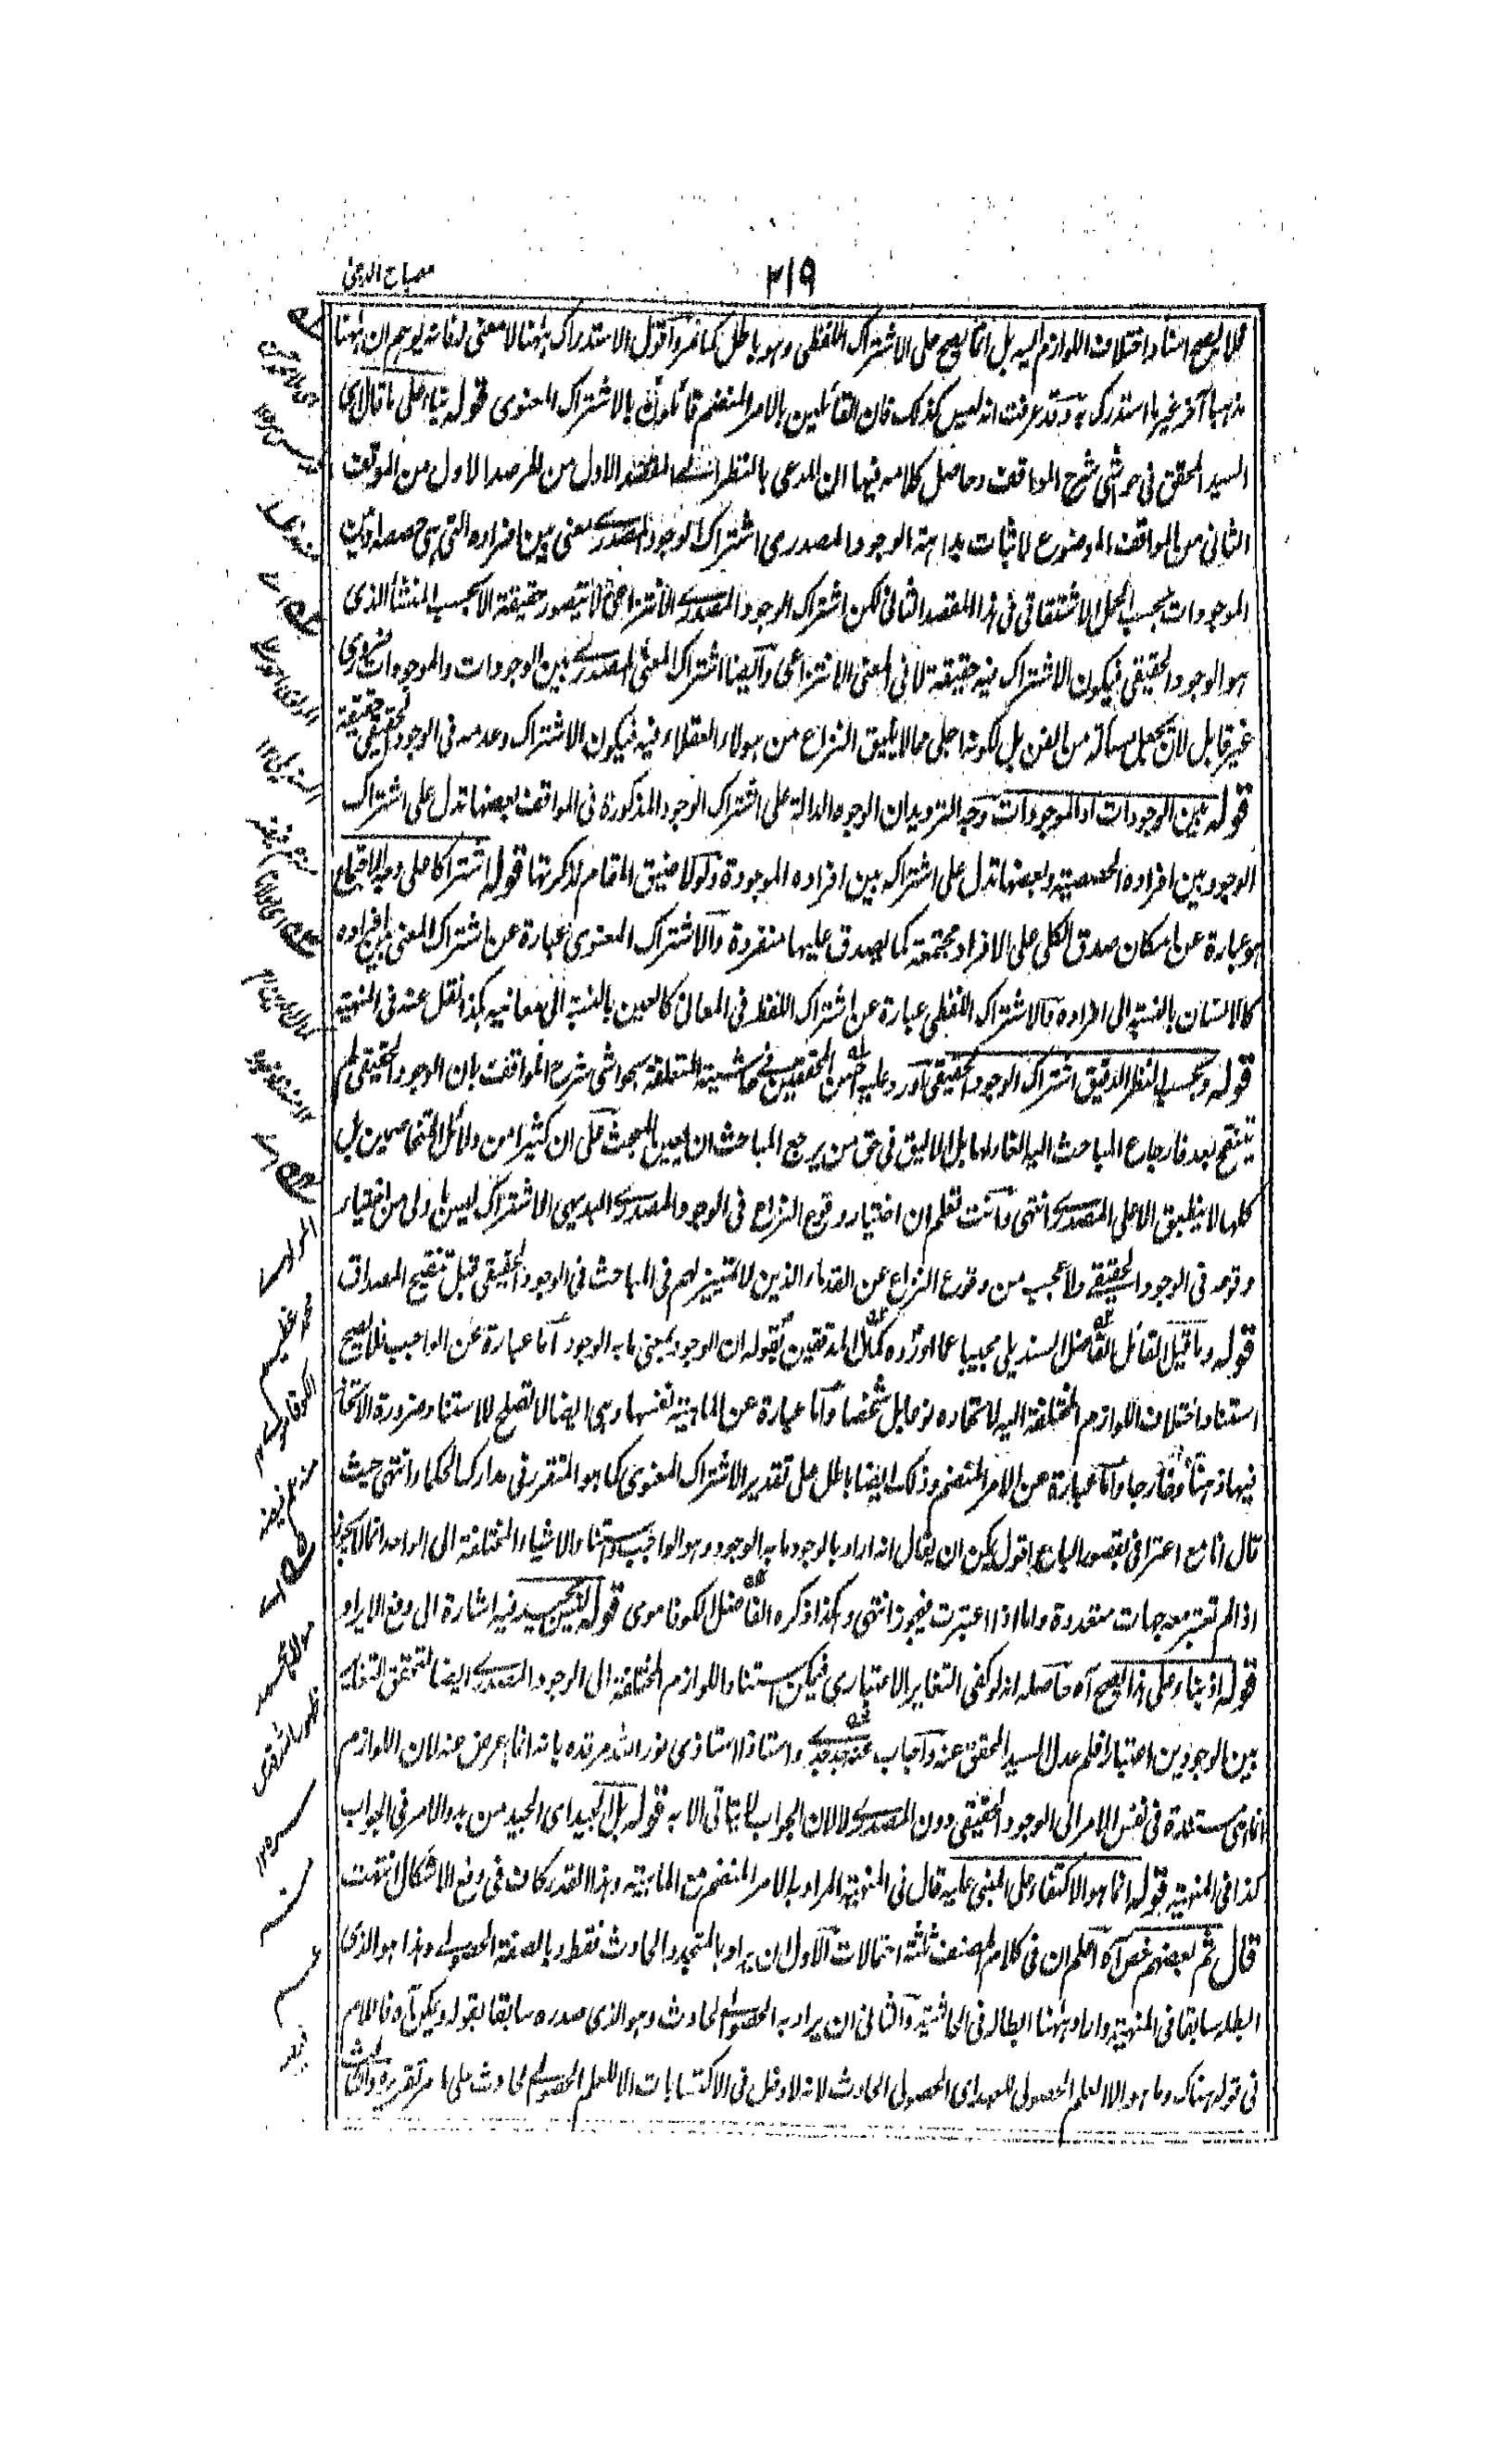 ٢١٩
مصباح الدجى
فلا يصح استناد اختلاف اللوازم اليه بل انما يصح على الاشتراك اللفظي وهو باطل كما تقرر اقول الاستدراك ههنا لا معنى له فانه يوهم ان ههنا
مذهبا آخر غير ما استدرك به وقد عرفت انه ليس كذلك فان القائلين بالامر المنضم قائلون بالاشتراك المعنوى قوله بناء على ما قال اى
السيد المحقق فى حواشى شرح المواقف وحاصل كلامه فيها ان المدعى بالنظر الى المقصد الاول من المرصد الاول من الموقف
الثانى من المواقف الموضوع لاثبات بداهة الوجود المصدرى اشتراك الوجود المصدرى يعنى بين افراده التى هى حصصه او بين
الموجودات بحسب الحمل الاشتقاقى فى هذا المقصد الثانى لكن اشتراك الوجود المصدرى الانتزاعى لا يتصور حقيقة الا بحسب المنشأ الذى
هو الوجود الحقيقى فيكون الاشتراك فيه حقيقة لا فى المعنى الانتزاعى وايضا اشتراك المعنى المصدرى بين الوجودات والموجودات ضرورى
غير قابل لان يجعل مسألة من الفن بل لكونه اجلى مما لا يليق النزاع من هولاء العقلاء فيه فيكون الاشتراك وعدمه فى الوجود الحقيقى حقيقة
قوله بين الوجودات او الموجودات وجه الترديد ان الوجوه الدالة على اشتراك الوجود المذكورة فى المواقف بعضها تدل على اشتراك
الوجود بين افراده الحصصية وبعضها تدل على اشتراكه بين افراده الموجودة ولولا ضيق المقام لذكرتها قوله اشتراكا على وجه الاجتماع
هو عبارة عن امكان صدق الكلى على الافراد مجتمعة كما يصدق عليها منفردة والاشتراك المعنوى عبارة عن اشتراك المعنى بين افراده
كالانسان بالنسبة الى افراده والاشتراك اللفظى عبارة عن اشتراك اللفظ فى المعانى كالعين بالنسبة الى معانيه كذا نقل عنه فى المنهية
قوله وبحسب النظر الدقيق اشتراك الوجود الحقيقى اورد عليه بعض المحققين فى حاشيته المتعلقة بحواشى شرح المواقف بان الوجود الحقيقى لم
ينقح بعد فارجاع المباحث اليه الغاء لها بل الاليق فى حق من يرجع المباحث ان يعين المبحث على ان كثيرا من دلائل المتخاصمين بل
كلها لا ينطبق الا على المصدرى انتهى وانت تعلم ان اختيار وقوع النزاع فى الوجود المصدرى البديهى الاشتراك ليس باولى من اختيار
وقوعه فى الوجود الحقيقى ولا عجب من وقوع النزاع عن القدماء الذين لا تمييز لهم فى المباحث فى الوجود الحقيقى قبل تنقيح المصداق
قوله وما قيل القائل الفاضل السنديلى مجيبا عما اورده كمال المدققين بقوله ان الوجود بمعنى ما به الوجود اما عبارة عن الواجب فلا يصح
استناد اختلاف اللوازم المختلفة اليه لاتحاده نوعا بل شخصا واما عبارة عن الماهية نفسها وهى ايضا لا تصلح للاستناد ضرورة الاتحاد
فيها ذهنا وخارجا واما عبارة عن الامر المنضم وذلك ايضا باطل على تقدير الاشتراك المعنوى كما هو المتقرر فى مدارك الحكماء انتهى حيث
قال انا مع اعترافى بقصور الباع اقول يمكن ان يقال انه اراد بالوجود ما به الوجود وهو الواجب واستناد الاشياء المختلفة الى الواحد انما لا يجوز
اذا لم تعتبر معه جهات متعددة واما اذا اعتبرت فيجوز انتهى وهكذا ذكره الفاضل الكوفاموى قوله ليس بجيد فيه اشارة الى دفع الايراد
قوله اذ بناء على هذا يصح آه حاصله انه لو كفى التغاير الاعتبارى فيمكن استناد اللوازم المختلفة الى الوجود المصدرى ايضا لتحقق التغاير
بين الوجودين اعتبارا فلم عدل السيد المحقق عنه واجاب عنه جدى واستاذ استاذى نور الله مرقده بانه انما اعرض عنه لان اللوازم
انما هى مستندة فى نفس الامر الى الوجود الحقيقى دون المصدرى لا لان الجواب لا يتأتى الا به قوله بل الجيد اى الجيد من بدو الامر فى الجواب
كذا فى المنهية قوله انما هو الاكتفاء على المبنى عليه قال فى المنهية المراد بالامر المنضم مع الماهية وهذا القدر كاف فى دفع الاشكال انتهت
قال ثم بعضهم خص آه اعلم ان فى كلام المصنف ثلثة احتمالات الاول ان يراد بالمتجدد الحادث فقط وبالصفة الحصولى وهذا هو الذى
ابطله سابقا فى المنهية واراد ههنا ابطاله فى الحاشية والثانى ان يراد به الحصولى الحادث وهو الذى صدره سابقا بقوله ويمكن آه فاللام
فى قوله هناك وما هو الا العلم الحصولى للعهد اى الحصولى الحادث لانه لا دخل فى الاكتسابات الا للعلم الحصولى الحادث على ما مر تقريره والثالث